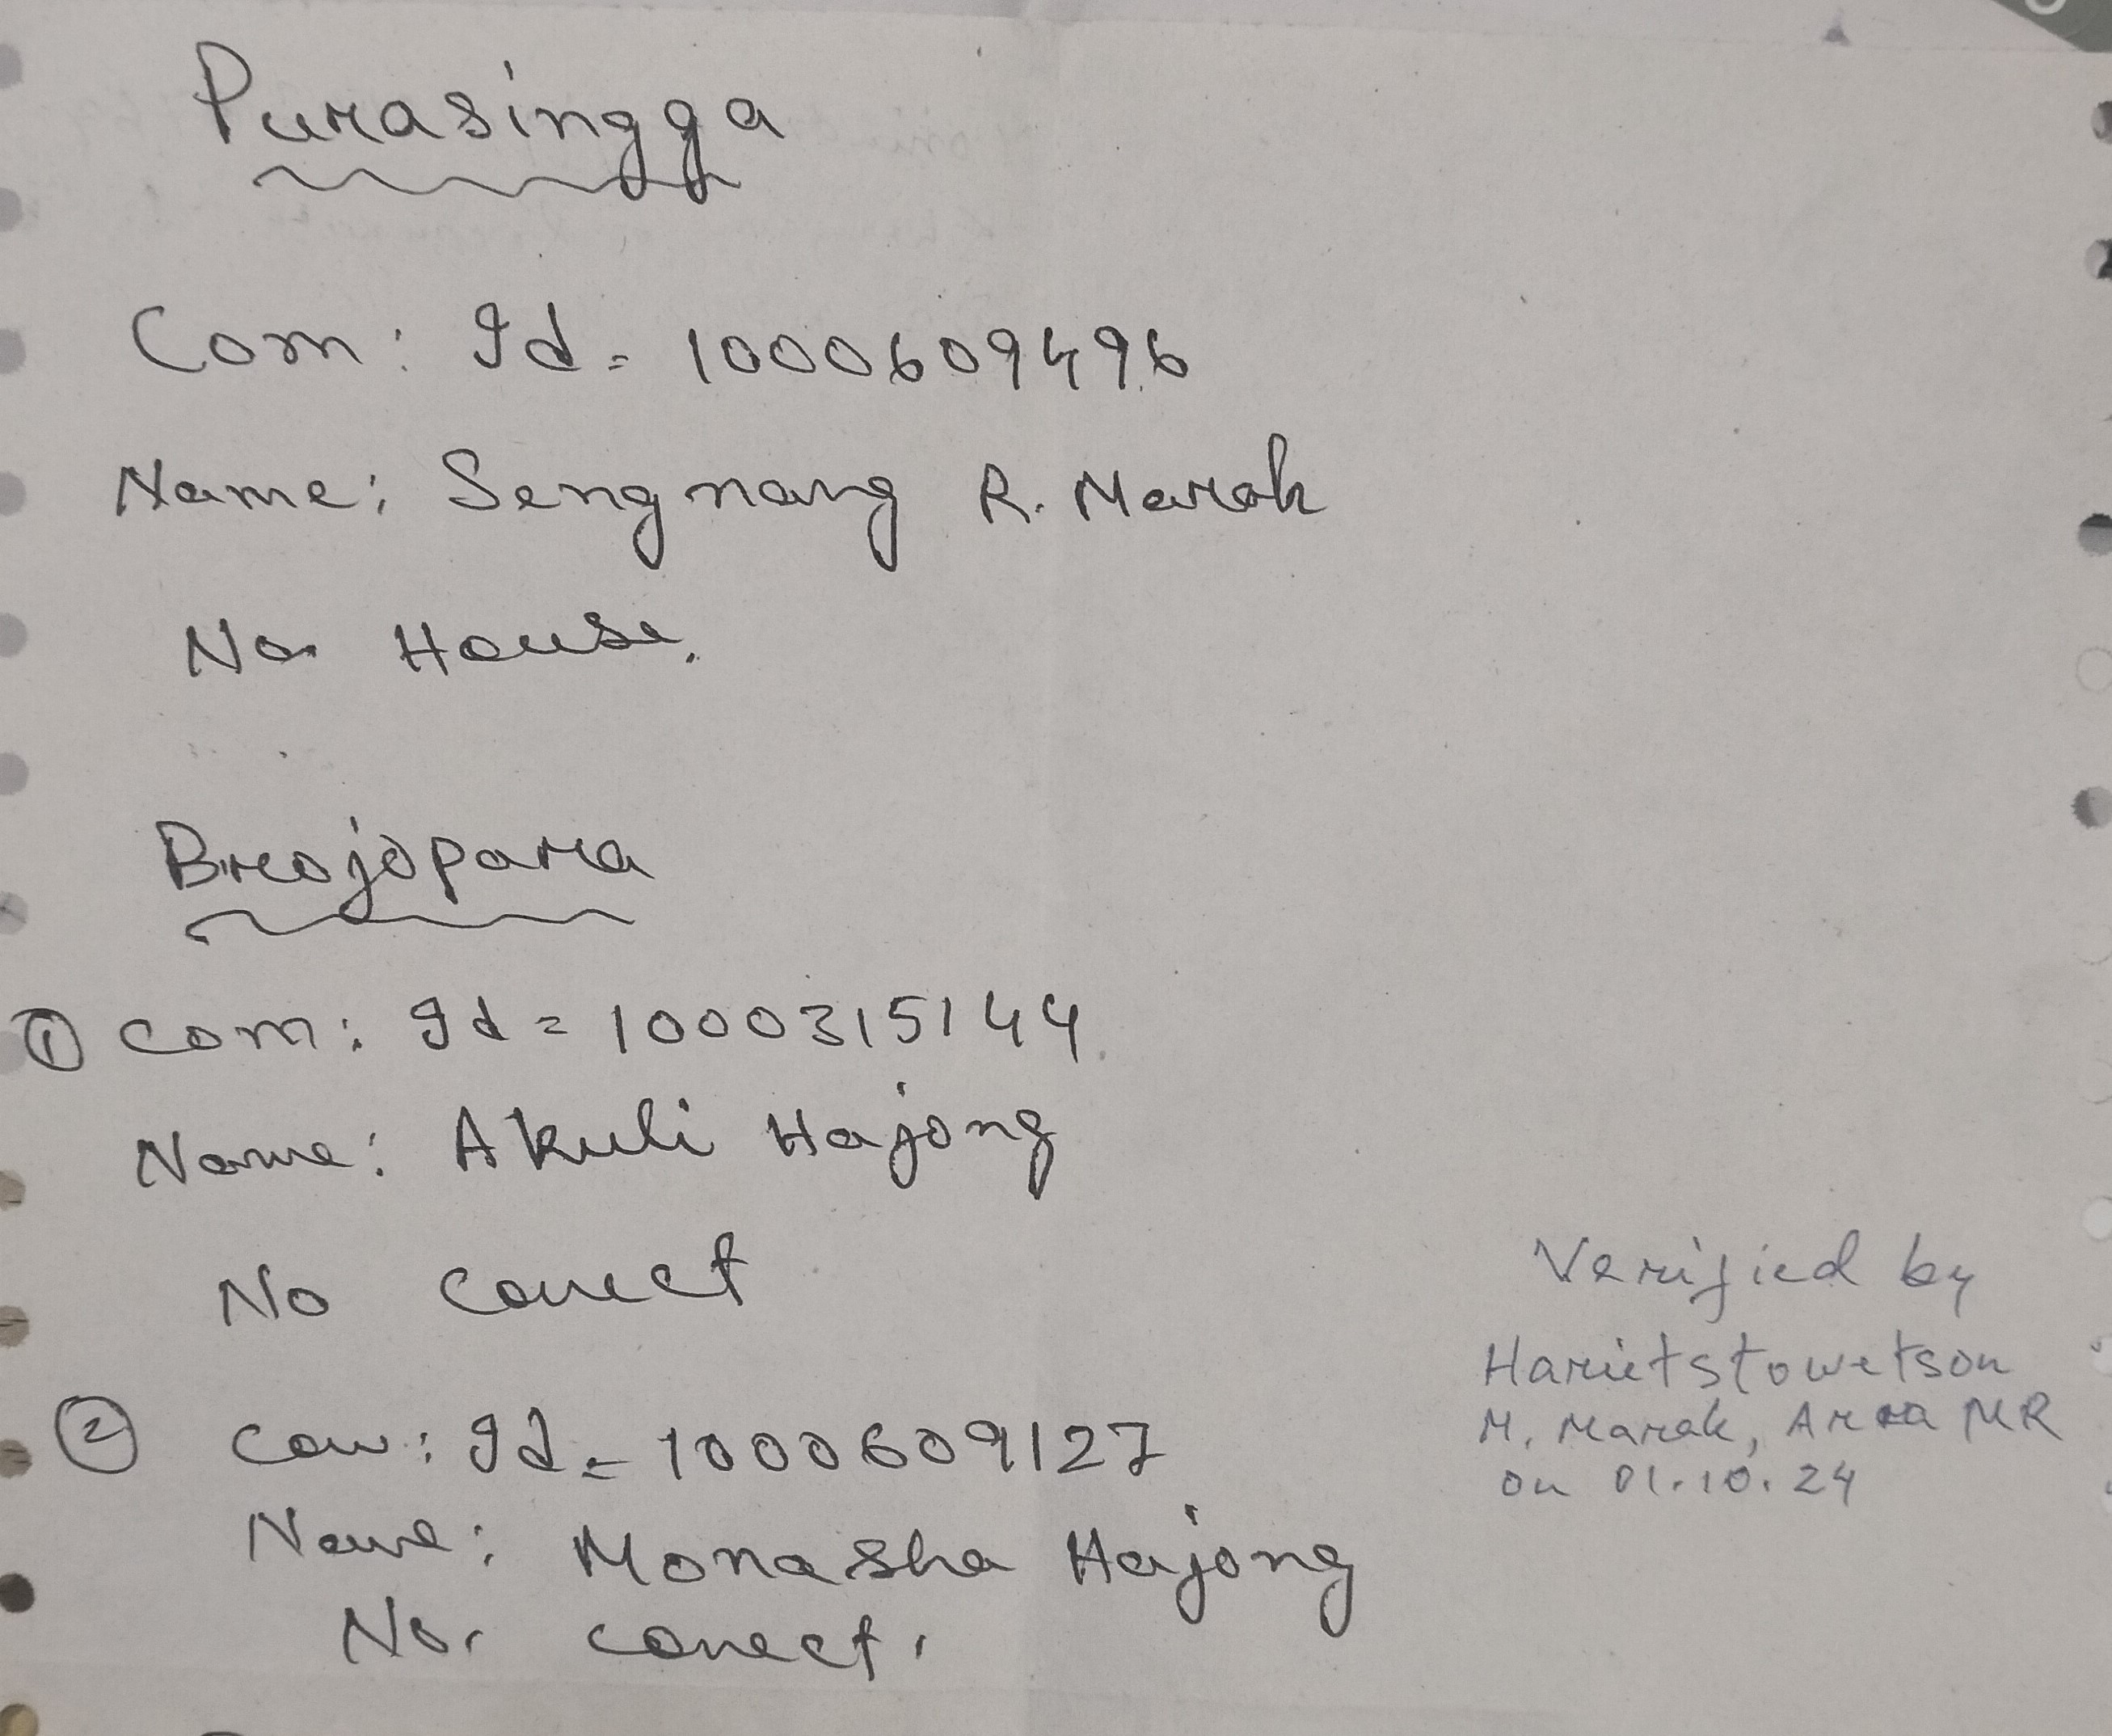 Purasingga
Com: Id = 1000609496
Name: Sengnang R. Marak
No House.
Brojopara
① Com: Id = 1000315144
Name: Akuli Hajong
No conect
② Com: Id = 1000609127
Name: Monasha Hajong
No. conect.
Verified by
Harietstowetson
M. Marak, Area MR
on 01.10.24